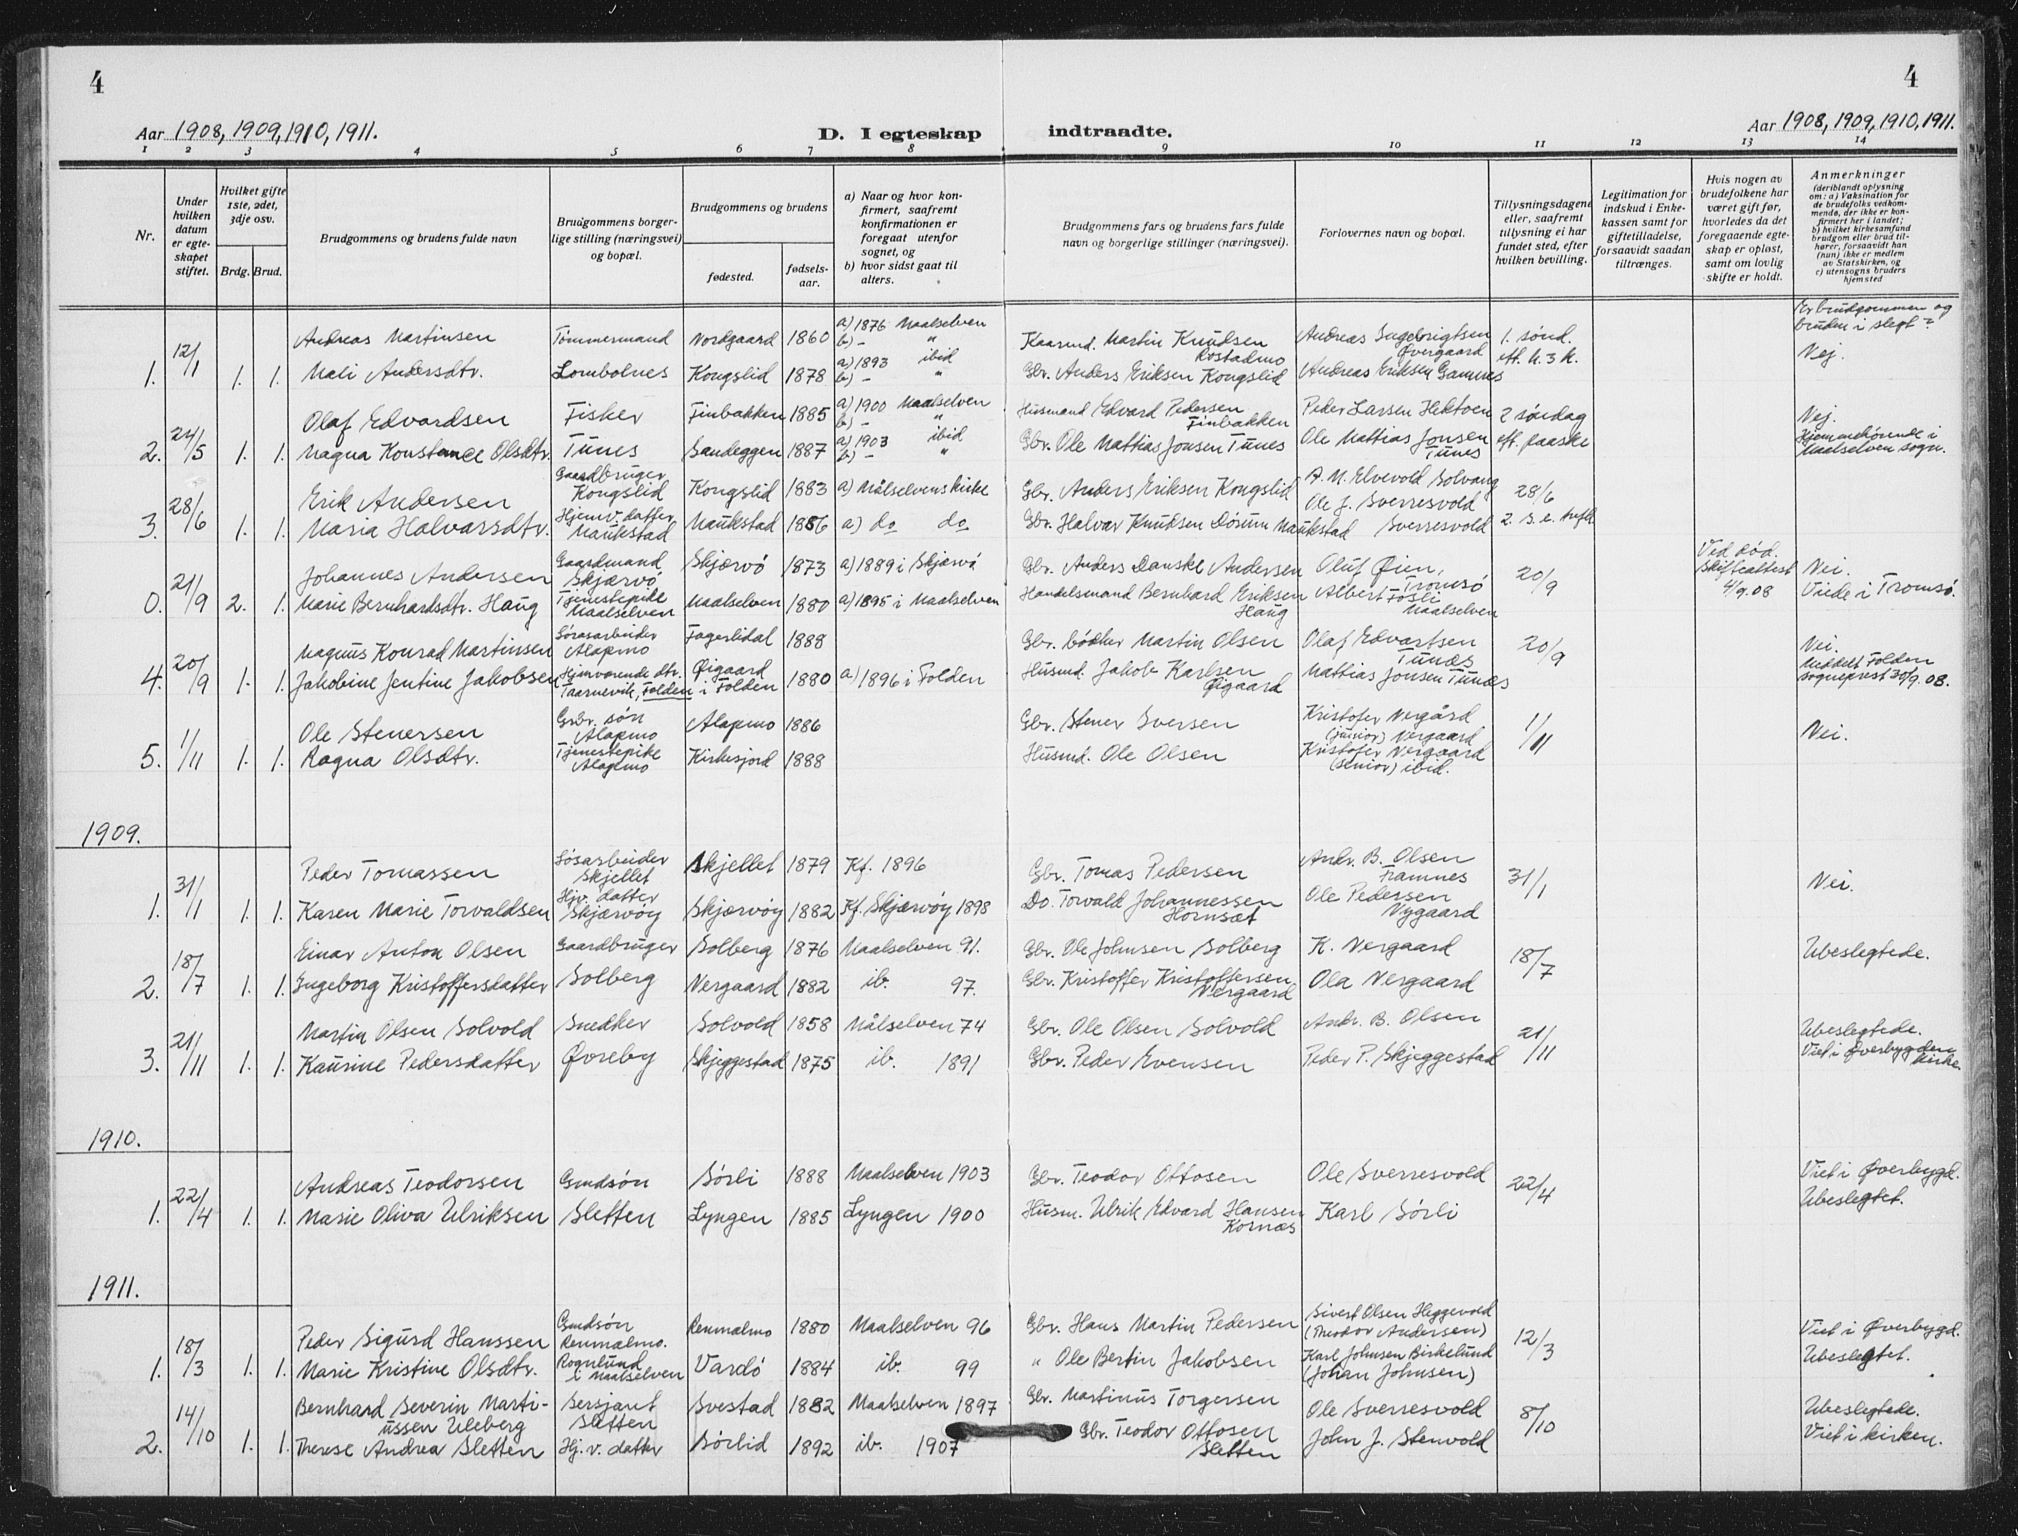 4
4
Aar 1908, 1909, 1910, 1911.
D. I egteskap indtraadte.
Aar 1908, 1909, 1910, 1911.
1 2 3 4 5 6 7 8 9 10 11 12 13 14
Nr.
Under hvilken datum er egteskapet stiftet.
Hvilket gifte 1ste, 2det, 3dje osv.
Brdg. Brud.
Brudgommens og brudens fulde navn
Brudgommens borgerlige stilling (næringsvei) og bopæl.
Brudgommens og brudens
fødested.
fødselsaar.
a) Naar og hvor konfirmert, saafremt konfirmationen er foregaat utenfor sognet, og
b) hvor sidst gaat til alters.
Brudgommens fars og brudens fars fulde navn og borgerlige stillinger (næringsvei).
Forlovernes navn og bopæl.
Tillysningsdagene eller, saafremt tillysning ei har fundet sted, efter hvilken bevilling.
Legitimation for indskud i Enkekassen samt for giftetilladelse, forsaavidt saadan tiltrænges.
Hvis nogen av brudefolkene har været gift før, hvorledes da det foregaaende egteskap er opløst, samt om lovlig skifte er holdt.
Anmerkninger
(deriblandt oplysning om: a) Vaksination for de brudefolks vedkommende, der ikke er konfirmert her i landet;
b) hvilket kirkesamfund brudgom eller brud tilhører, forsaavidt han (hun) ikke er medlem av Statskirken, og
c) utensogns bruders hjemsted
Er brudgommen og bruden i slegt?
Andreas Martinsen Tømmermand Nordgaard 1860 a) 1876 Maalselven b) - " Kaarmd. Martin Knudsen Rostadmo Andreas Ingebrigtsen Øvergaard 1. sønd. Nej.
1. 12/1 1. 1. Mali Andersdtr. Lombolnes Kongslid 1878 a) 1893 ibid b) - " Gbr. Anders Eriksen Kongslid Andreas Eriksen Gamnes eft. h. 3 k.
Olaf Edvardsen Fisker Finbakken 1885 a) 1900 Maalselven b) - " Husmand Edvard Pedersen Finbakken Peder Larsen Hektoen 2 søndag Nej.
2. 24/5 1. 1. Magna Konstance Olsdtr. Tunes Sandeggen 1887 a) 1903 ibid b) - " Gbr. Ole Mattias Jonsen Tunes Ole Mattias Jonsen Tunes eft. paaske Hjemmehørende i Maalselven sogn.
Erik Andersen Gaardbruger Kongslid Kongslid 1883 a) Målselvens kirke Gbr. Anders Eriksen Kongslid A. M. Elvevold Solvang 28/6
3. 28/6 1. 1. Maria Halvarsdtr. Hjemv. datter Maukstad Maukstad 1886 a) do do Gbr. Halvar Knudsen Døsum Maukstad Ole J. Sverresvold Sverresvold 2. s. e.
Johannes Andersen Gaardmand Skjærvö Skjærvö 1873 a) 1889 i Skjærvö Gbr. Anders Danske Andersen Oluf Øien, Tromsö 20/9 Ved död. Skifteattest 4/9.08 Nei.
0. 21/9 2. 1. Marie Bernhardsdtr. Haug Tjenestepike Maalselven Maalselven 1880 a) 1895 i Maalselven Handelsmand Bernhard Eriksen Haug Albert Fosli Maalselven Viede i Tromsö.
Magnus Konrad Martinsen Alapmo Fagerlidal 1888 Gbr. bödker Martin Olsen Olaf Edvartsen Tunæs 20/9 Nei.
4. 20/9 1. 1. Jakobine Jentine Jakobsen Hjemværende dtr. Taarnevik, Folden Øigaard i Folden 1880 a) 1896 i Folden Husmd. Jakob Karlsen Øigaard Mattias Jonsen Tunæs Meddelt Folden sogneprest 30/9. 08.
Ole Stenersen Grbr. søn Alapmo Alapmo 1886 Gbr. Stener Iversen Kristofer Vergård (junior) Vergaard 1/11 Nei.
5. 1/11 1. 1. Ragna Olsdtr. Tjenestepike Alapmo Kirkesjord 1888 Husmd. Ole Olsen Kristofer Vergaard (senior) ibid.
1909.
Peder Tomassen Løsarbeider Skjellet Skjellet 1879 Kf. 1896 Gbr. Tomas Pedersen Andr. B. Olsen Framnes 31/1 Nei.
1. 31/1 1. 1. Karen Marie Torvaldsen Hjv. datter Skjærvöy Skjærvöy 1882 Kf. Skjærvöy 1898 Do. Torvald Johannessen Hornsæt Ole Pedersen Nygaard
Einar Anton Olsen Gaardbruger Solberg 1876 Maalselven 91. Gbr. Ole Johnsen Solberg K. Vergaard 18/7 Ubeslegtede.
2. 18/7 1. 1. Ingeborg Kristoffersdatter Solberg Vergaard 1882 ib. 97. Gbr. Kristoffer Kristoffersen Vergaard Ola Vergaard
Martin Olsen Solvold Snedker Solvold 1858 Målselven 74 Gbr. Ole Olsen Solvold Andr. B. Olsen 21/11 Ubeslegtede.
3. 21/11 1. 1. Kaurine Pedersdatter Øvreby Skjeggestad 1875 ib. 1891 Gbr. Peder Evensen Peder P. Skjeggestad Viet i Øverbygden kirke.
1910.
Andreas Teodorsen Gmdsøn Sörli 1888 Maalselven 1903 Gbr. Teodor Ottosen Ole Sverresvold 22/4 Viet i Øverbygd.
1. 22/4 1. 1. Marie Oliva Ulriksen Sletten Lyngen 1885 Lyngen 1900 Husm. Ulrik Edvard Hansen Kornæs Karl Sörli Ubeslegtet.
1911.
Peder Sigurd Hanssen Gmdsön Renmælmo. Renmælmo 1880 Maalselven 96 Gbr. Hans Martin Pedersen Sivert Olsen Heggevold (Theodor Andersen) 12/3 Viet i Øverbygd.
1. 18/3 1. 1. Marie Kristine Olsdtr. Rognlund i Maalselven Vardö 1884 ib. 99 " Ole Bertin Jakobsen Karl Johnsen Birkelund (Johan Johnsen) Ubeslegtet.
Bernhard Severin Martiussen Uleberg Sersjant Sletten Svestad 1882 Maalselven 1897 Gbr. Martinus Torgersen Ole Sverresvold 8/10 Ubeslegtede.
2. 14/10 1. 1. Therese Andrea Sletten Hj. v. datter Sörlid 1892 ib. 1907 Gbr. Teodor Ottosen Sletten John J. Stenvold Viet i kirken.